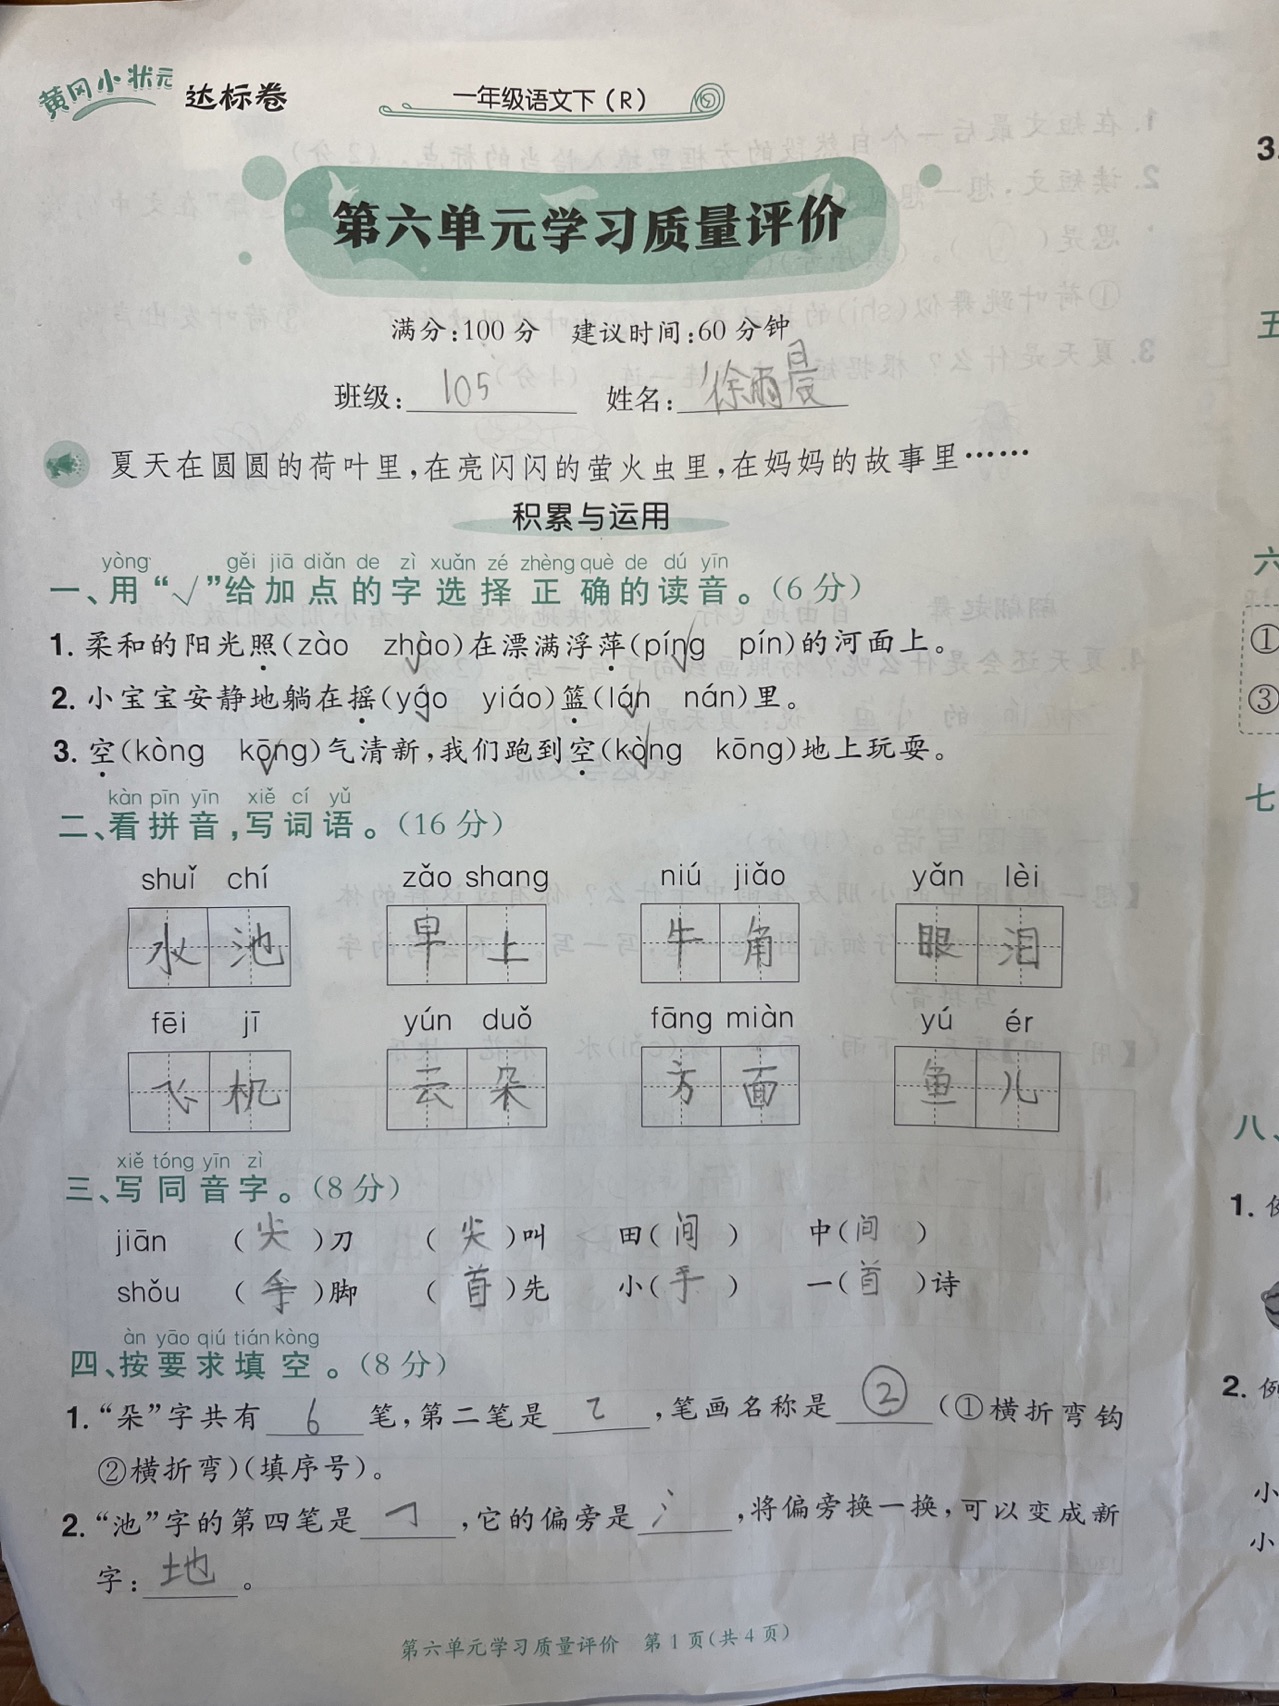 黄冈小状元 达标卷 一年级语文下(R)
第六单元学习质量评价
满分:100分 建议时间:60分钟
班级: 105 姓名: 徐雨晨
夏天在圆圆的荷叶里,在亮闪闪的萤火虫里,在妈妈的故事里……
积累与运用
yòng gěi jiā diǎn de zì xuǎn zé zhèng què de dú yīn
一、用“√”给加点的字选择正确的读音。(6分)
1. 柔和的阳光照(zào zhào√)在漂满浮萍(píng√ pín)的河面上。
2. 小宝宝安静地躺在摇(yáo√ yiáo)篮(lán√ nán)里。
3. 空(kòng kōng√)气清新,我们跑到空(kòng√ kōng)地上玩耍。
kàn pīn yīn xiě cí yǔ
二、看拼音,写词语。(16分)
shuǐ chí zǎo shang niú jiǎo yǎn lèi
水池 早上 牛角 眼泪
fēi jī yún duǒ fāng miàn yú ér
飞机 云朵 方面 鱼儿
xiě tóng yīn zì
三、写同音字。(8分)
jiān (尖)刀 (尖)叫 田(间) 中(间)
shǒu (手)脚 (首)先 小(手) 一(首)诗
àn yāo qiú tián kòng
四、按要求填空。(8分)
1. “朵”字共有 6 笔,第二笔是 ㇈ ,笔画名称是 ② (①横折弯钩
②横折弯)(填序号)。
2. “池”字的第四笔是 ㇆ ,它的偏旁是 氵 ,将偏旁换一换,可以变成新
字: 地 。
第六单元学习质量评价 第1页(共4页)
3.
五
六
①
③
七
八、
1. 例
2. 例
小
小